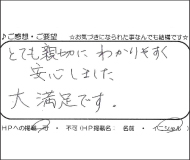 ♪ご感想・ご要望 ☆お気づきになられた事なんでも結構です☆
とても親切に わかりやすく
安心しました
大満足です。
HPへの掲載・可・不可(HP掲載名: 名前・イニシャル)